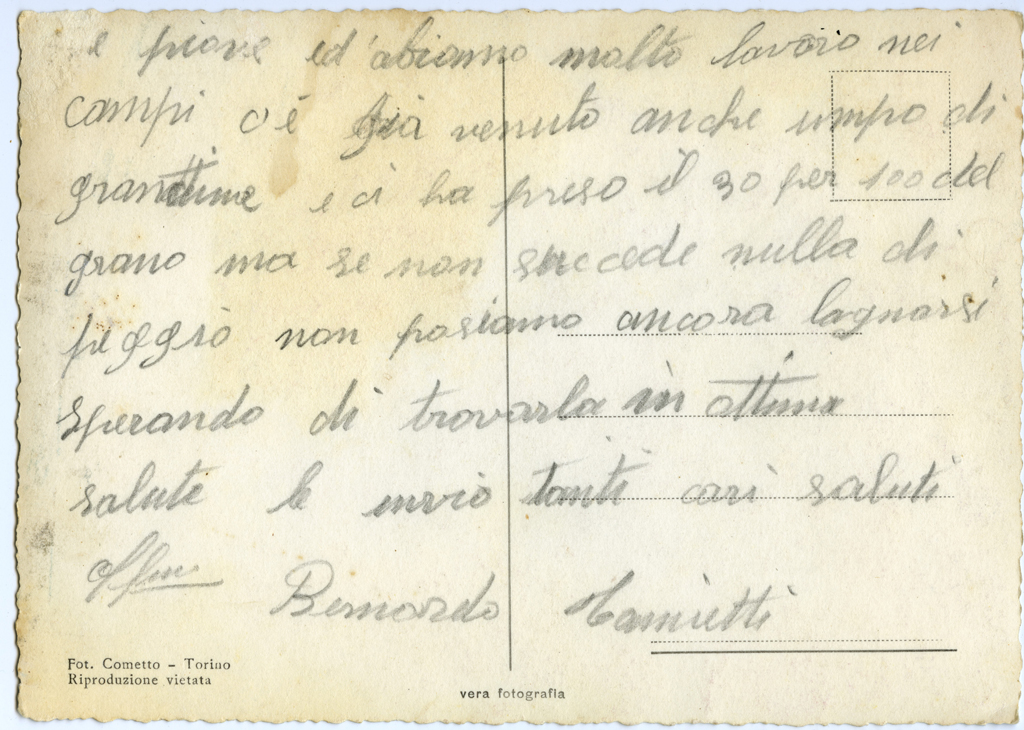 e piove ed'abiamo molto lavoro nei
campi c'é già venuto anche umpo di
grandine e ci ha preso il 30 per 100 del
grano ma se non succede nulla di
peggiò non posiamo ancora lagnarsi
sperando di trovarla in ottima
salute le invio tanti cari saluti
Bernardo
Fot. Cometto - Torino
Riproduzione vietata
vera fotografia